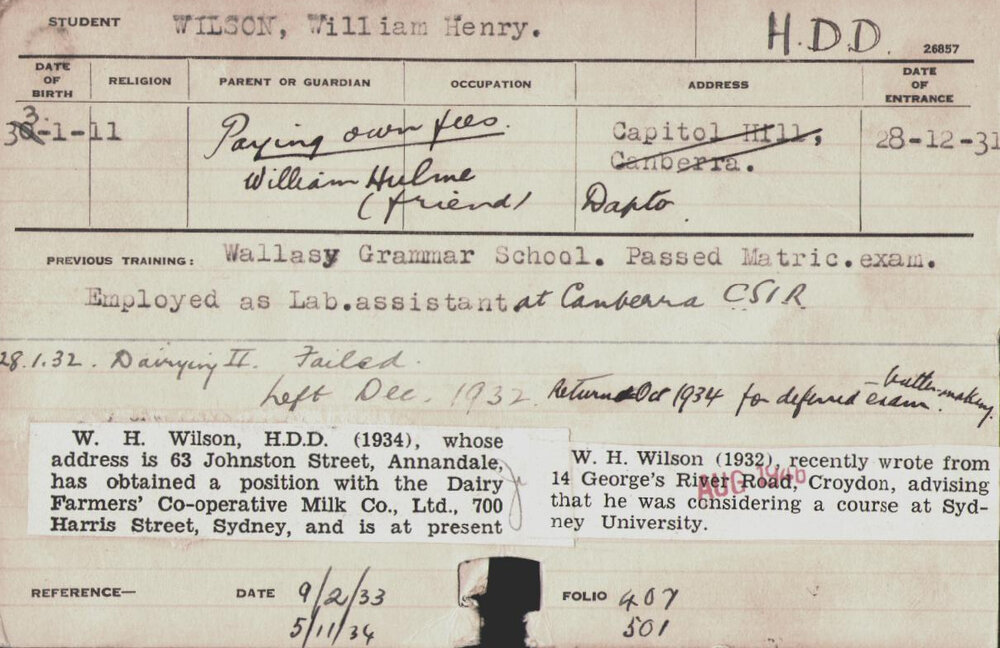 STUDENT WILSON, William Henry. H.D.D. 26857
DATE OF BIRTH RELIGION PARENT OR GUARDIAN OCCUPATION ADDRESS DATE OF ENTRANCE
30-1-11 Paying own fees. Capitol Hill, 28-12-31
3
Canberra.
William Hulme
(friend) Dapto.
PREVIOUS TRAINING: Wallasy Grammar School. Passed Matric.exam.
Employed as Lab.assistant at Canberra CSIR
28.1.32. Dairying II. Failed.
Left Dec. 1932. Returned Oct 1934 for deferred exam. – butter-making.
W. H. Wilson, H.D.D. (1934), whose
address is 63 Johnston Street, Annandale,
has obtained a position with the Dairy
Farmers' Co-operative Milk Co., Ltd., 700
Harris Street, Sydney, and is at present
W. H. Wilson (1932), recently wrote from
14 George's River Road, Croydon, advising
that he was considering a course at Syd-
ney University.
AUG 1946
REFERENCE— DATE 9/2/33 FOLIO 407
5/11/34 501